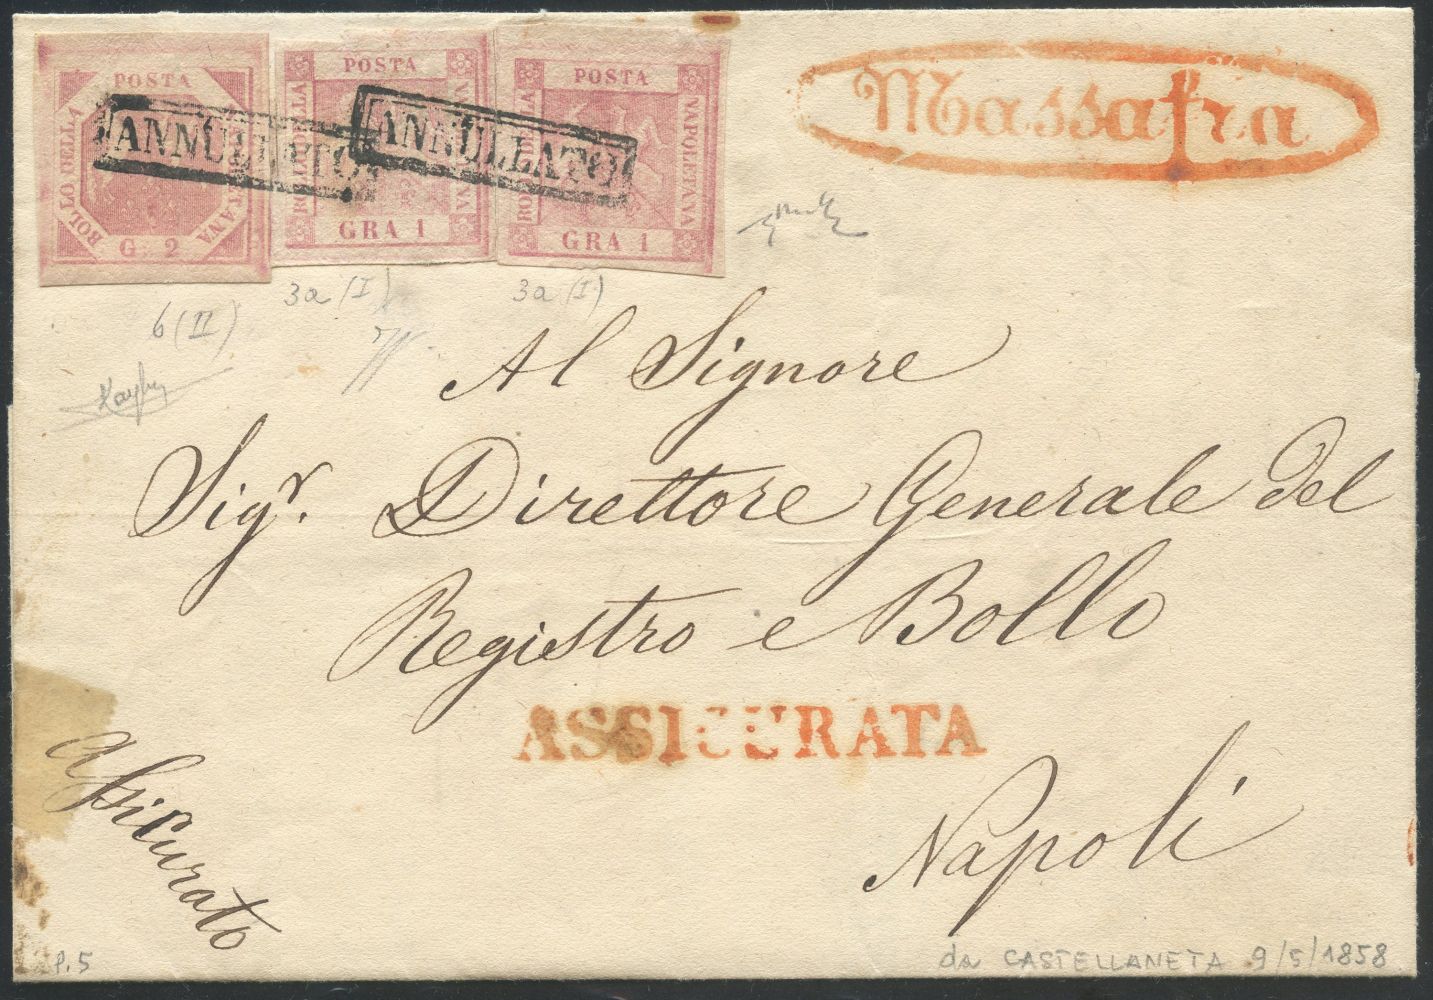 POSTA
BOLLO DELLA
G. 2
ANNULLATO
POSTA
BOLLO DELLA
GRA 1
ANNULLATO
POSTA
BOLLO DELLA
NAPOLETANA
GRA 1
Massafra
3a (I)
3a (I)
6 (II)
Al Signore
Sigr. Direttore Generale del
Registro e Bollo
ASSICURATA
Assicurato
Napoli
P.5
da CASTELLANETA 9/5/1858